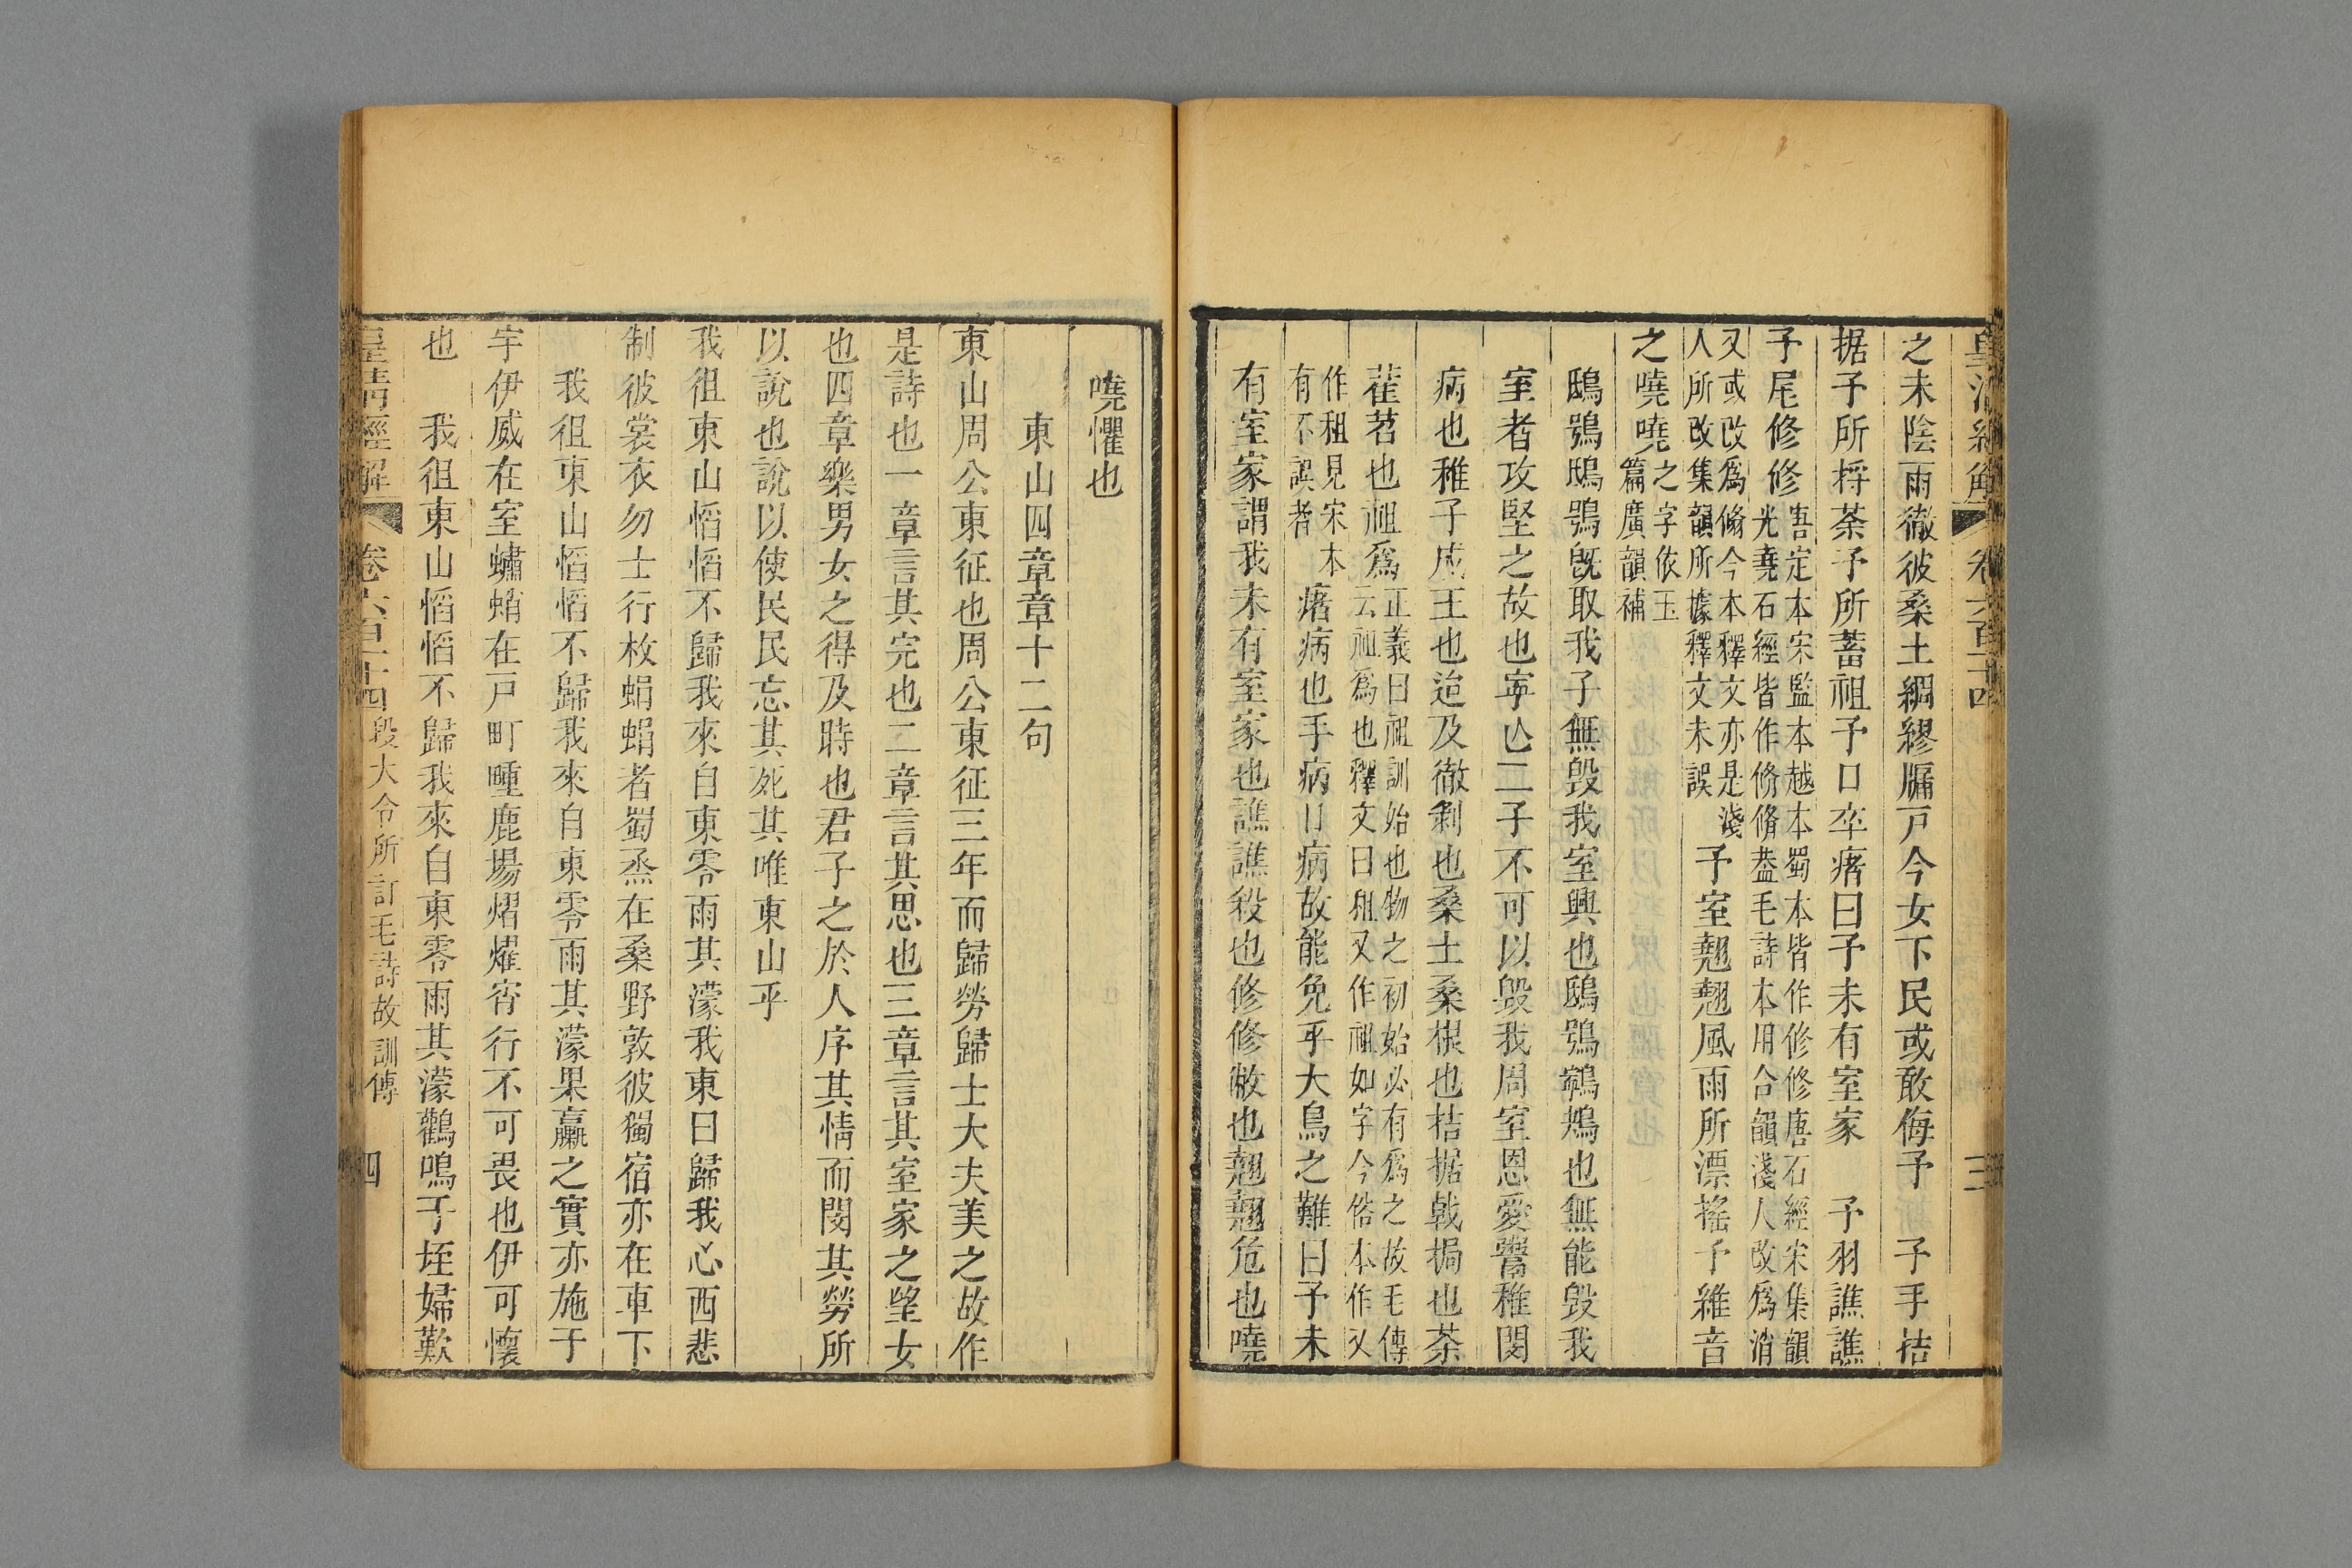 皇清經解 卷六百二十四 三
之未陰雨徹彼桑土綢繆牖戸今女下民或敢侮予 予手拮
据予所捋荼予所蓄祖予口卒瘏曰予未有室家 予羽譙譙
予尾修修
唐定本宋監本越本蜀本皆作修修唐石經宋集韻
光堯石經皆作翛翛葢毛詩本用合韻淺人改爲消
又或改爲翛今本釋文亦是淺
人所改集韻所據釋文未誤
予室翹翹風雨所漂搖予維音
之嘵嘵
之字依玉
篇廣韻補
鴟鴞鴟鴞旣取我子無毁我室興也鴟鴞鸋鴂也無能毁我
室者攻堅之故也寧亾二子不可以毁我周室恩愛鬻稚閔
病也稚子成王也迨及徹剥也桑土桑根也拮据戟挶也荼
萑苕也祖爲
正義曰祖訓始也物之初始必有爲之故毛傳
云祖爲也釋文曰租又作祖如字今俗本作又
作租見宋本
有不誤者
瘏病也手病口病故能免乎大鳥之難曰予未
有室家謂我未有室家也譙譙殺也修修敝也翹翹危也嘵
嘵懼也
東山四章章十二句
東山周公東征也周公東征三年而歸勞歸士大夫美之故作
是詩也一章言其完也二章言其思也三章言其室家之望女
也四章樂男女之得及時也君子之於人序其情而閔其勞所
以說也說以使民民忘其死其唯東山乎
我徂東山慆慆不歸我來自東零雨其濛我東曰歸我心西悲
制彼裳衣勿士行枚蜎蜎者蜀烝在桑野敦彼獨宿亦在車下
我徂東山慆慆不歸我來自東零雨其濛果臝之實亦施于
宇伊威在室蠨蛸在戸町畽鹿場熠燿宵行不可畏也伊可懷
也 我徂東山慆慆不歸我來自東零雨其濛鸛鳴于垤婦歎
皇清經解 卷六百二十四 段大令所訂毛詩故訓傳 四